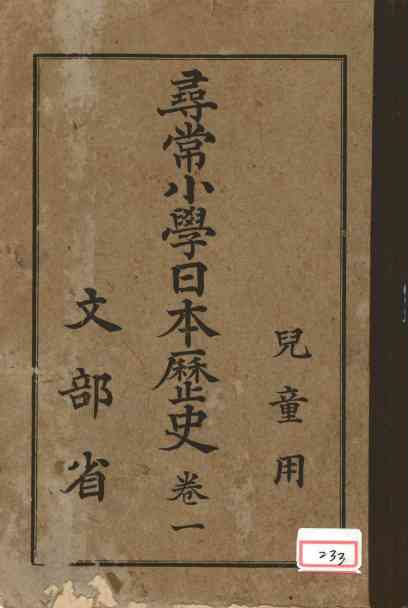 兒童用
尋常小學日本歷史 卷一
文部省
233